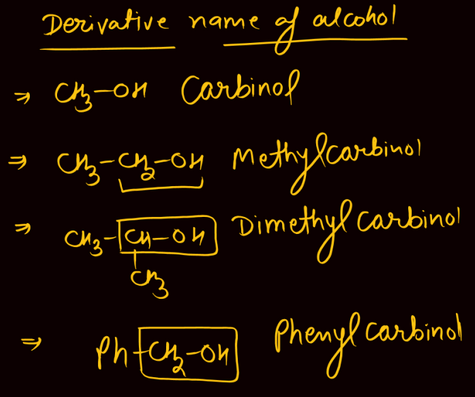 Derivative name of alcohol
⇒ CH3-OH Carbinol
⇒ CH3-CH2-OH Methylcarbinol
⇒ CH3-CH-OH Dimethyl carbinol
CH3
⇒ Ph-CH2-OH Phenyl carbinol